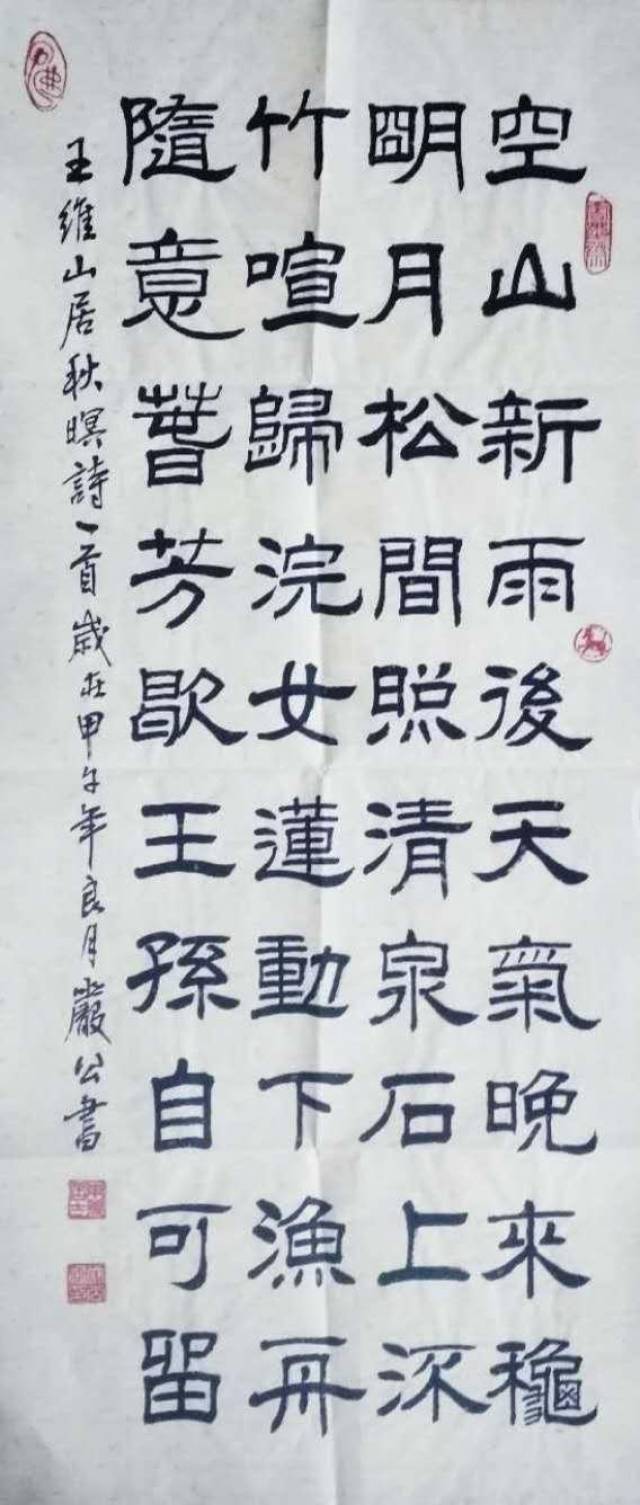 空山新雨後天氣晚來龝
朙月松間照清泉石上流
竹喧歸浣女蓮動下漁舟
隨意萅芳歇王孫自可留
王維山居秋暝詩一首歲在甲午年良月嚴公書